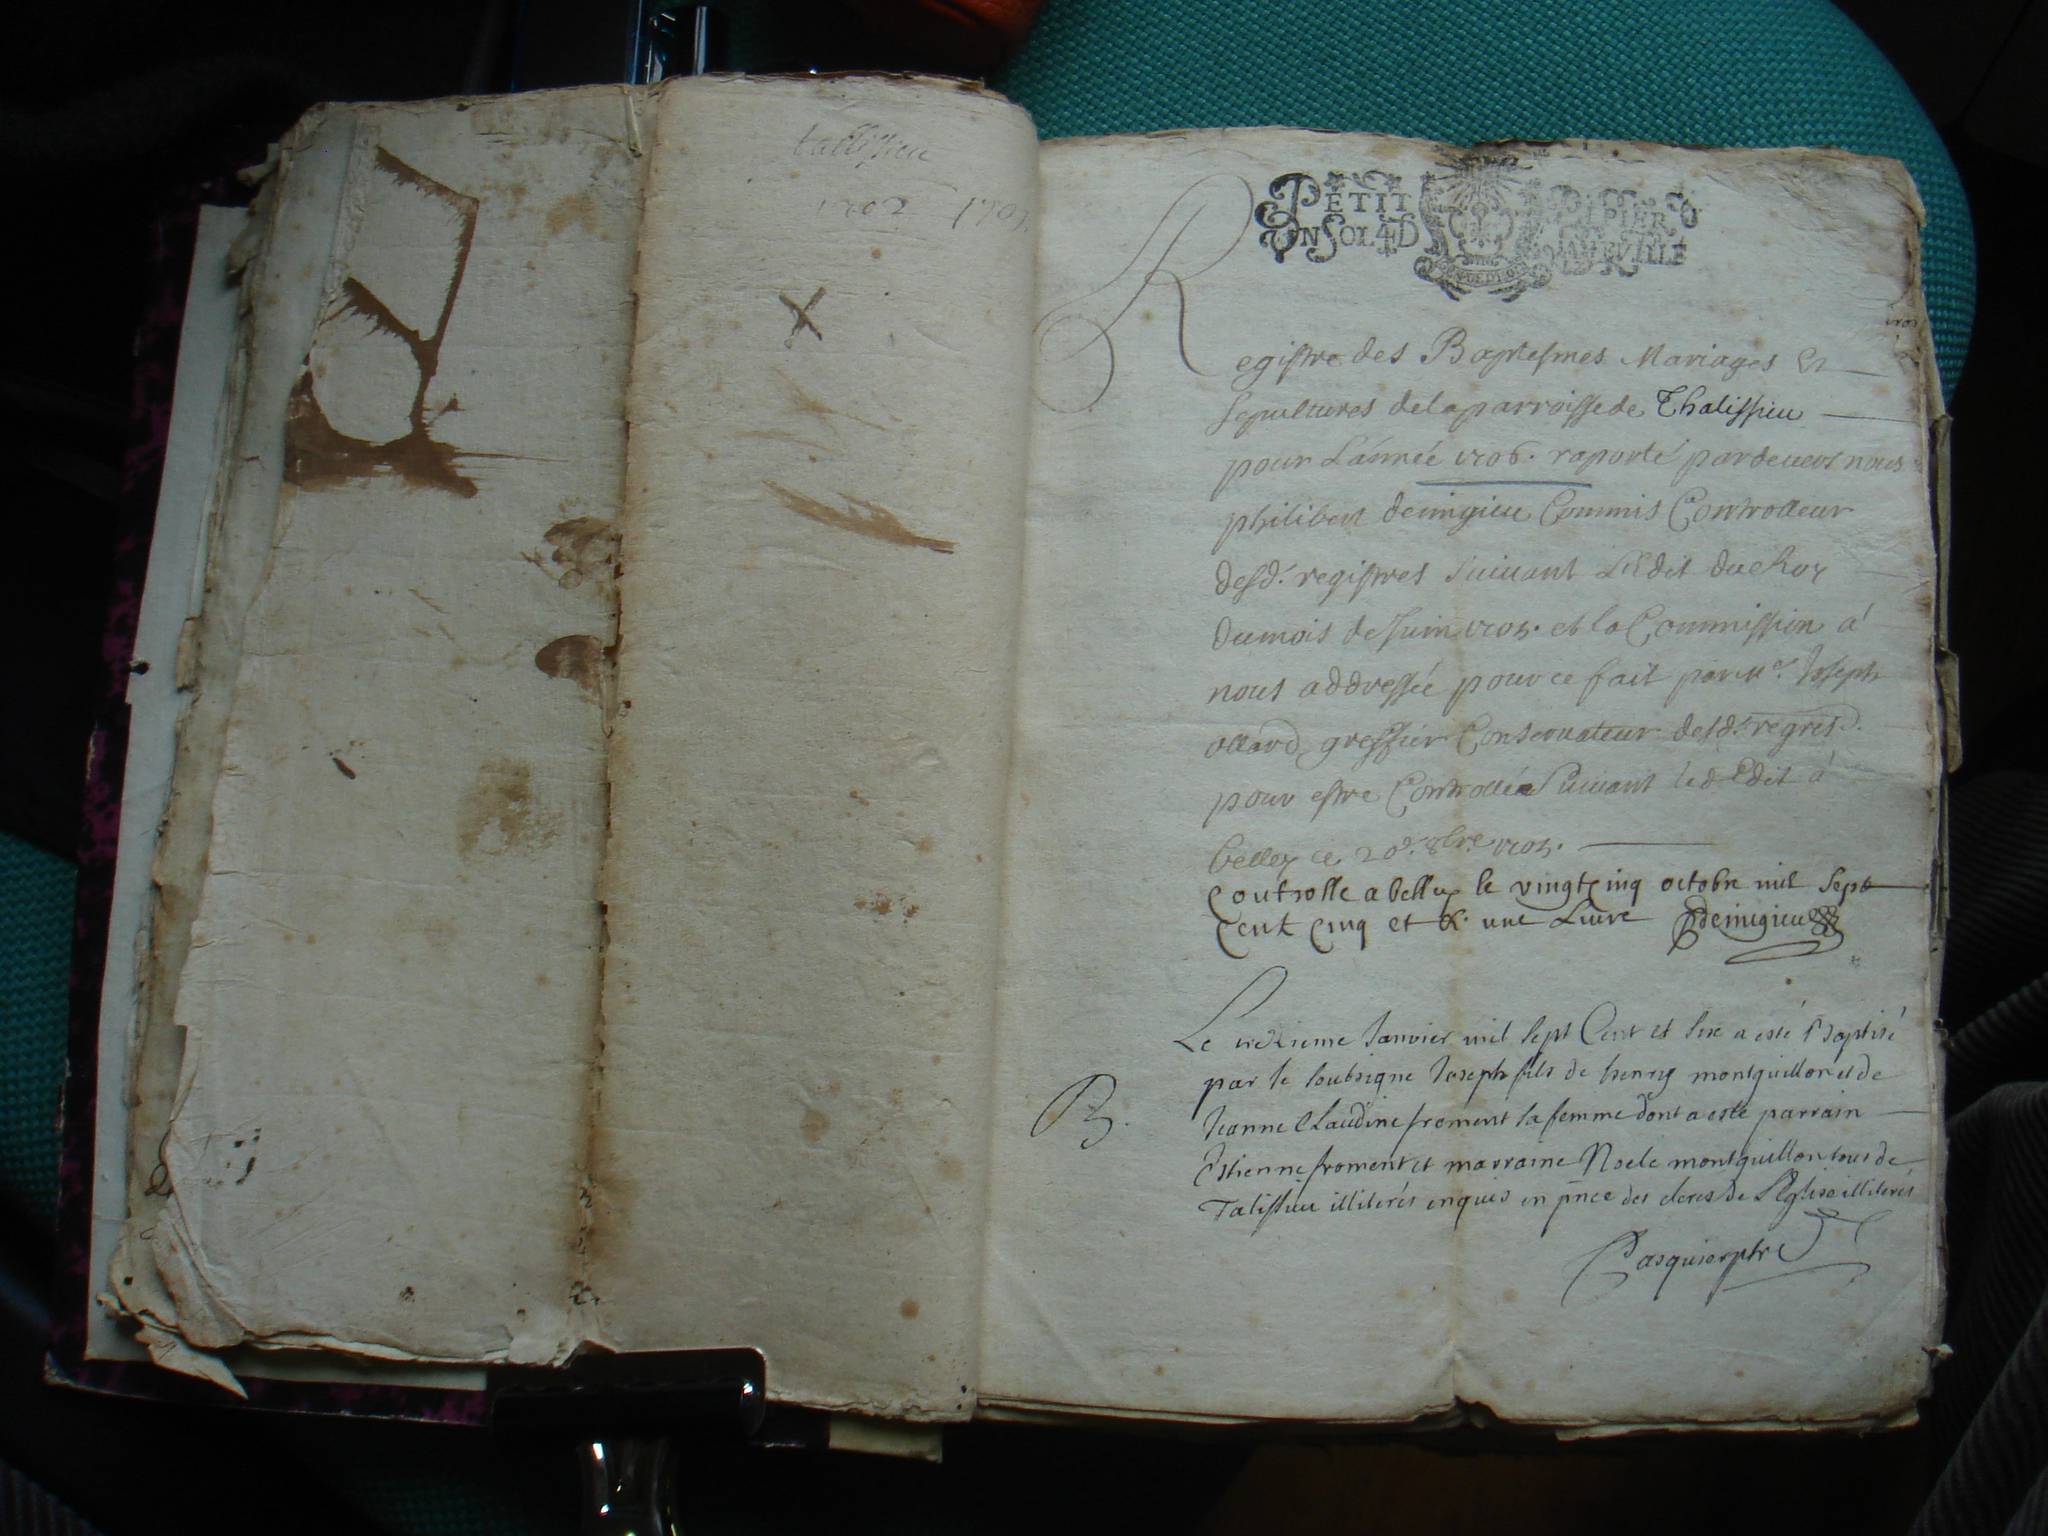 tallissieu
1702 1703
PETIT PAPIER
UN SOL 4D LA FEVILLE
Registre des Baptesmes Mariages Et
sepultures de la parroisse de Thalissieu
pour L'année 1706. raporté pardevers nous
philibert demigieu Commis Controlleur
desd. registres suivant L'Edit du Roy
du mois de Juin 1705. et la Commission à
nous addressée pour ce fait par Me. Joseph
ollard greffier Conservateur desd. regres.
pour estre Controllée suivant led Edit à
belley ce 20e. 8bre 1705.
Controlle a belley le vingt cinq octobre mil sept
Cent Cinq et R. une Livre PDemigieu
Le treizieme Janvier mil sept Cent et six a esté Baptisé
par le soubsigne Joseph fils de henry montguillon et de
B. Jeanne Claudine froment sa femme dont a este parrain
Estienne froment et marraine Noele montguillon tous de
Talissieu illiterés enquis en pnce des clercs de l'Eglise illiterés
Pasquier ptre